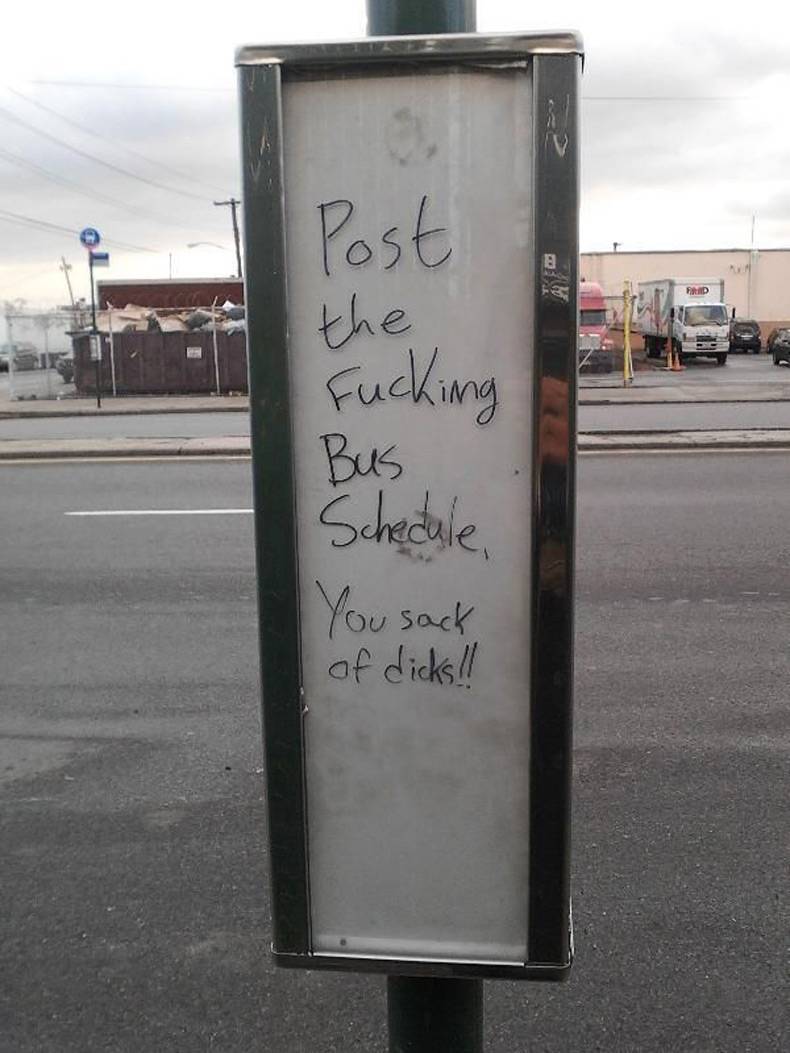 Post
the
Fucking
Bus
Schedule,
You sack
of dicks!!